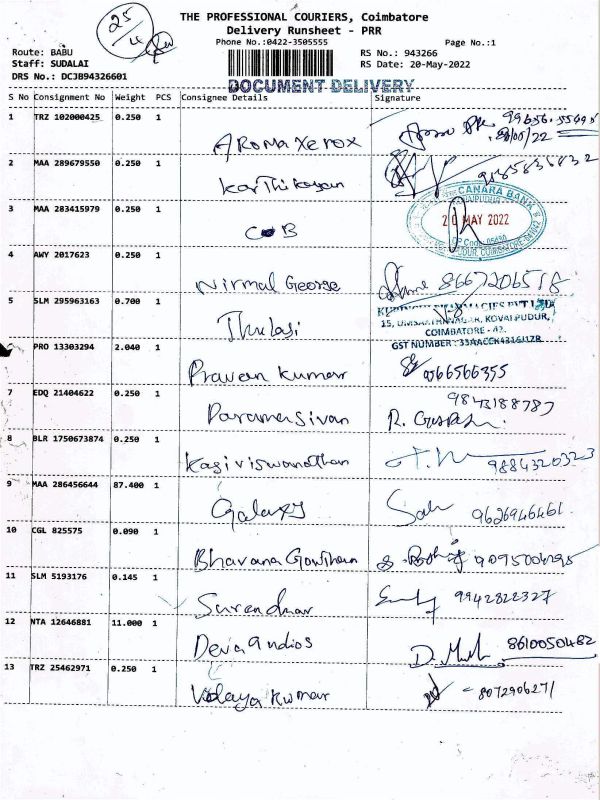 25
THE PROFESSIONAL COURIERS, Coimbatore
Delivery Runsheet - PRR
Phone No.:0422-3505555
Page No.:1
Route: BABU
Staff: SUDALAI
DRS No.: DCJB94326601
RS No.: 943266
RS Date: 20-May-2022
DOCUMENT DELIVERY
S No Consignment No Weight PCS Consignee Details Signature
1 TRZ 102000425 0.250 1 Aroma Xerox
2 MAA 289679550 0.250 1 Karthikayan
3 MAA 283415979 0.250 1 COB
CANARA BANK
20 MAY 2022
4 AWY 2017623 0.250 1 Nirmal George 8667206518
5 SLM 295963163 0.700 1 Thulasi
COIMBATORE - 42.
GST NUMBER : 33AACCK4316J1ZR
PRO 13303294 2.040 1 Praveen Kumar 9566566355
7 EDQ 21404622 0.250 1 Paramasivan 9843188787
8 BLR 1750673874 0.250 1 Kasiviswanathan 9884320323
9 MAA 286456644 87.400 1 Galaxy 9626946461
10 CGL 825575 0.090 1 Bhavana Gowtham 9095004295
11 SLM 5193176 0.145 1 Surendnar 9942822327
12 NTA 12646881 11.000 1 Deva Andios 8610050482
13 TRZ 25462971 0.250 1 Vidaya Kumar 8072906271